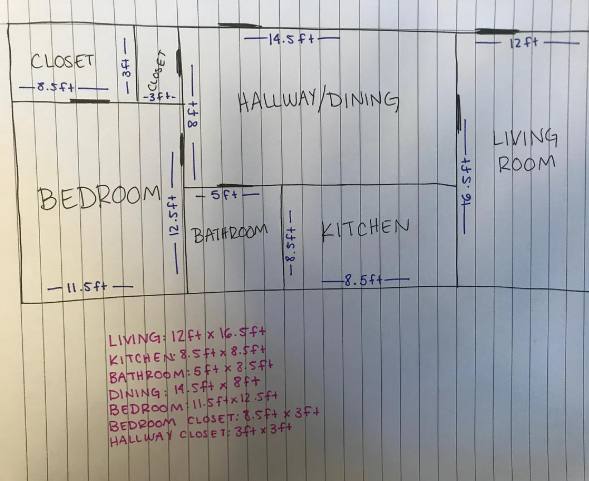 14.5ft
12ft
CLOSET
8.5ft
3ft
CLOSET
3ft
8ft
HALLWAY/DINING
LIVING
ROOM
16.5ft
BEDROOM
12.5ft
11.5ft
5ft
BATHROOM
8.5ft
KITCHEN
8.5ft
LIVING: 12ft x 16.5ft
KITCHEN: 8.5ft x 8.5ft
BATHROOM: 5ft x 8.5ft
DINING: 14.5ft x 8ft
BEDROOM: 11.5ft x 12.5ft
BEDROOM CLOSET: 8.5ft x 3ft
HALLWAY CLOSET: 3ft x 3ft